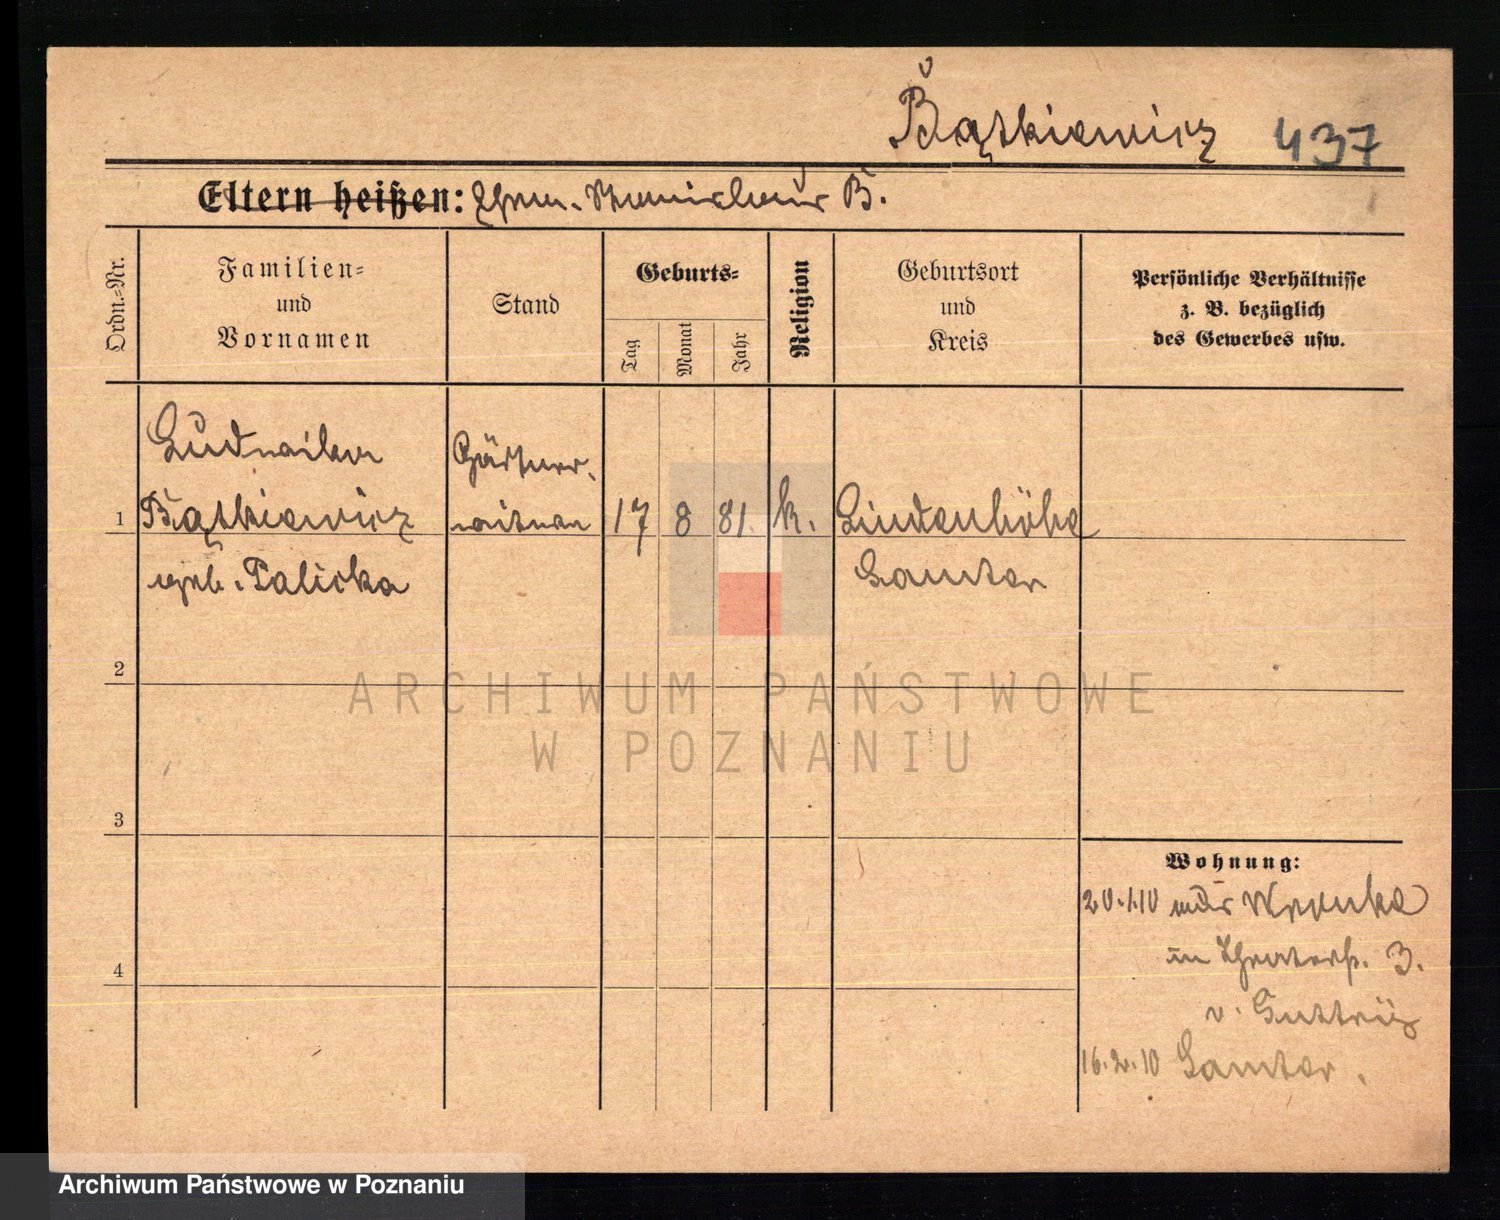 Bątkiewicz 437
Eltern heißen: Ehem. Stanislaus B.
Ordn.-Nr.
Familien-
und
Vornamen
Stand
Geburts-
Tag
Monat
Jahr
Religion
Geburtsort
und
Kreis
Persönliche Verhältnisse
z. B. bezüglich
des Gewerbes usw.
Ludwika
Gärtner-
1 Bątkiewicz witwe 17 8 81. k. Lindenhöhe
geb. Palicka Samter
2
3
4
Wohnung:
20.1.10
in 3.
v.
16.2.10 Samter.
ARCHIWUM PAŃSTWOWE
W POZNANIU
Archiwum Państwowe w Poznaniu